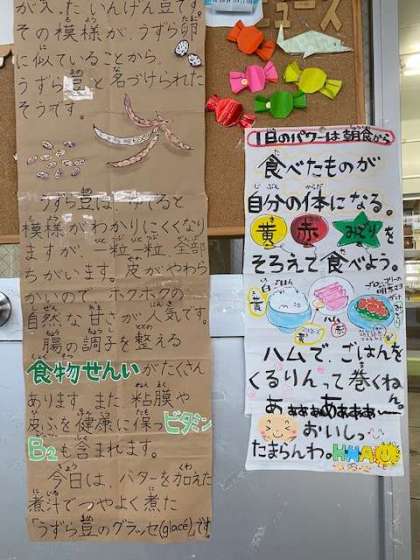 が入った いんげん豆です。
その模様が、うずら卵
に似ていることから、
うずら豆と名づけられた
そうです。
うずら豆は、ゆでると
模様がわかりにくくなり
ますが、一粒一粒、全部
ちがいます。皮がやわら
かいので、ホクホクの
自然な甘さが人気です。
腸の調子を整える
食物せんいがたくさん
あります。また粘膜や
皮ふを健康に保つビタミン
B2も含まれます。
今日は、バターを加えた
煮汁でつやよく煮た
「うずら豆のグラッセ(glacé)」です
ニュース
1日のパワーは朝食から
食べたものが
自分の体になる。
黄 赤 みどりを
そろえて食べよう。
ごはん
黄
赤
ハムで、ごはんを
くるりんって巻くねん。
あぁぁぁあぁぁぁ〜
おいしっ
たまらんわ。